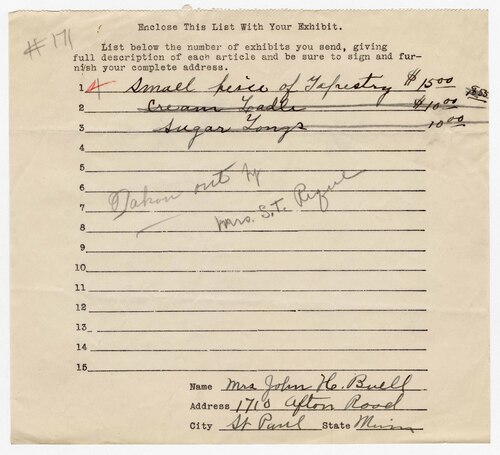 #171
Enclose This List With Your Exhibit.
List below the number of exhibits you send, giving
full description of each article and be sure to sign and fur-
nish your complete address.
1 Small peice of Tapestry $15.00
2 Cream Ladle $10.00
3 Sugar Tongs 10.00
4
5
6 Takon out by
7 Mrs. S.T.
8
9
10
11
12
13
14
15
Name Mrs John H. Buell
Address 1710 Afton Road
City St Paul State Minn